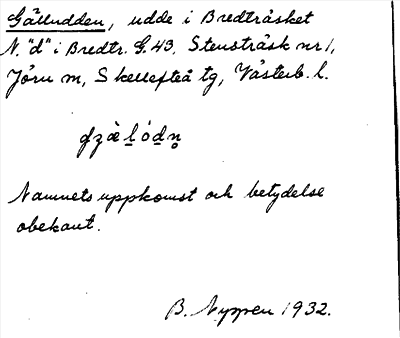 Gälludden, udde i Bredträsket
N. "d" i Bredtr. G.43, Stensträsk nr 1,
Jörn sn, Skellefteå tg, Västerb. l.
Namnets uppkomst och betydelse
obekant.
B. Nyppen 1932.